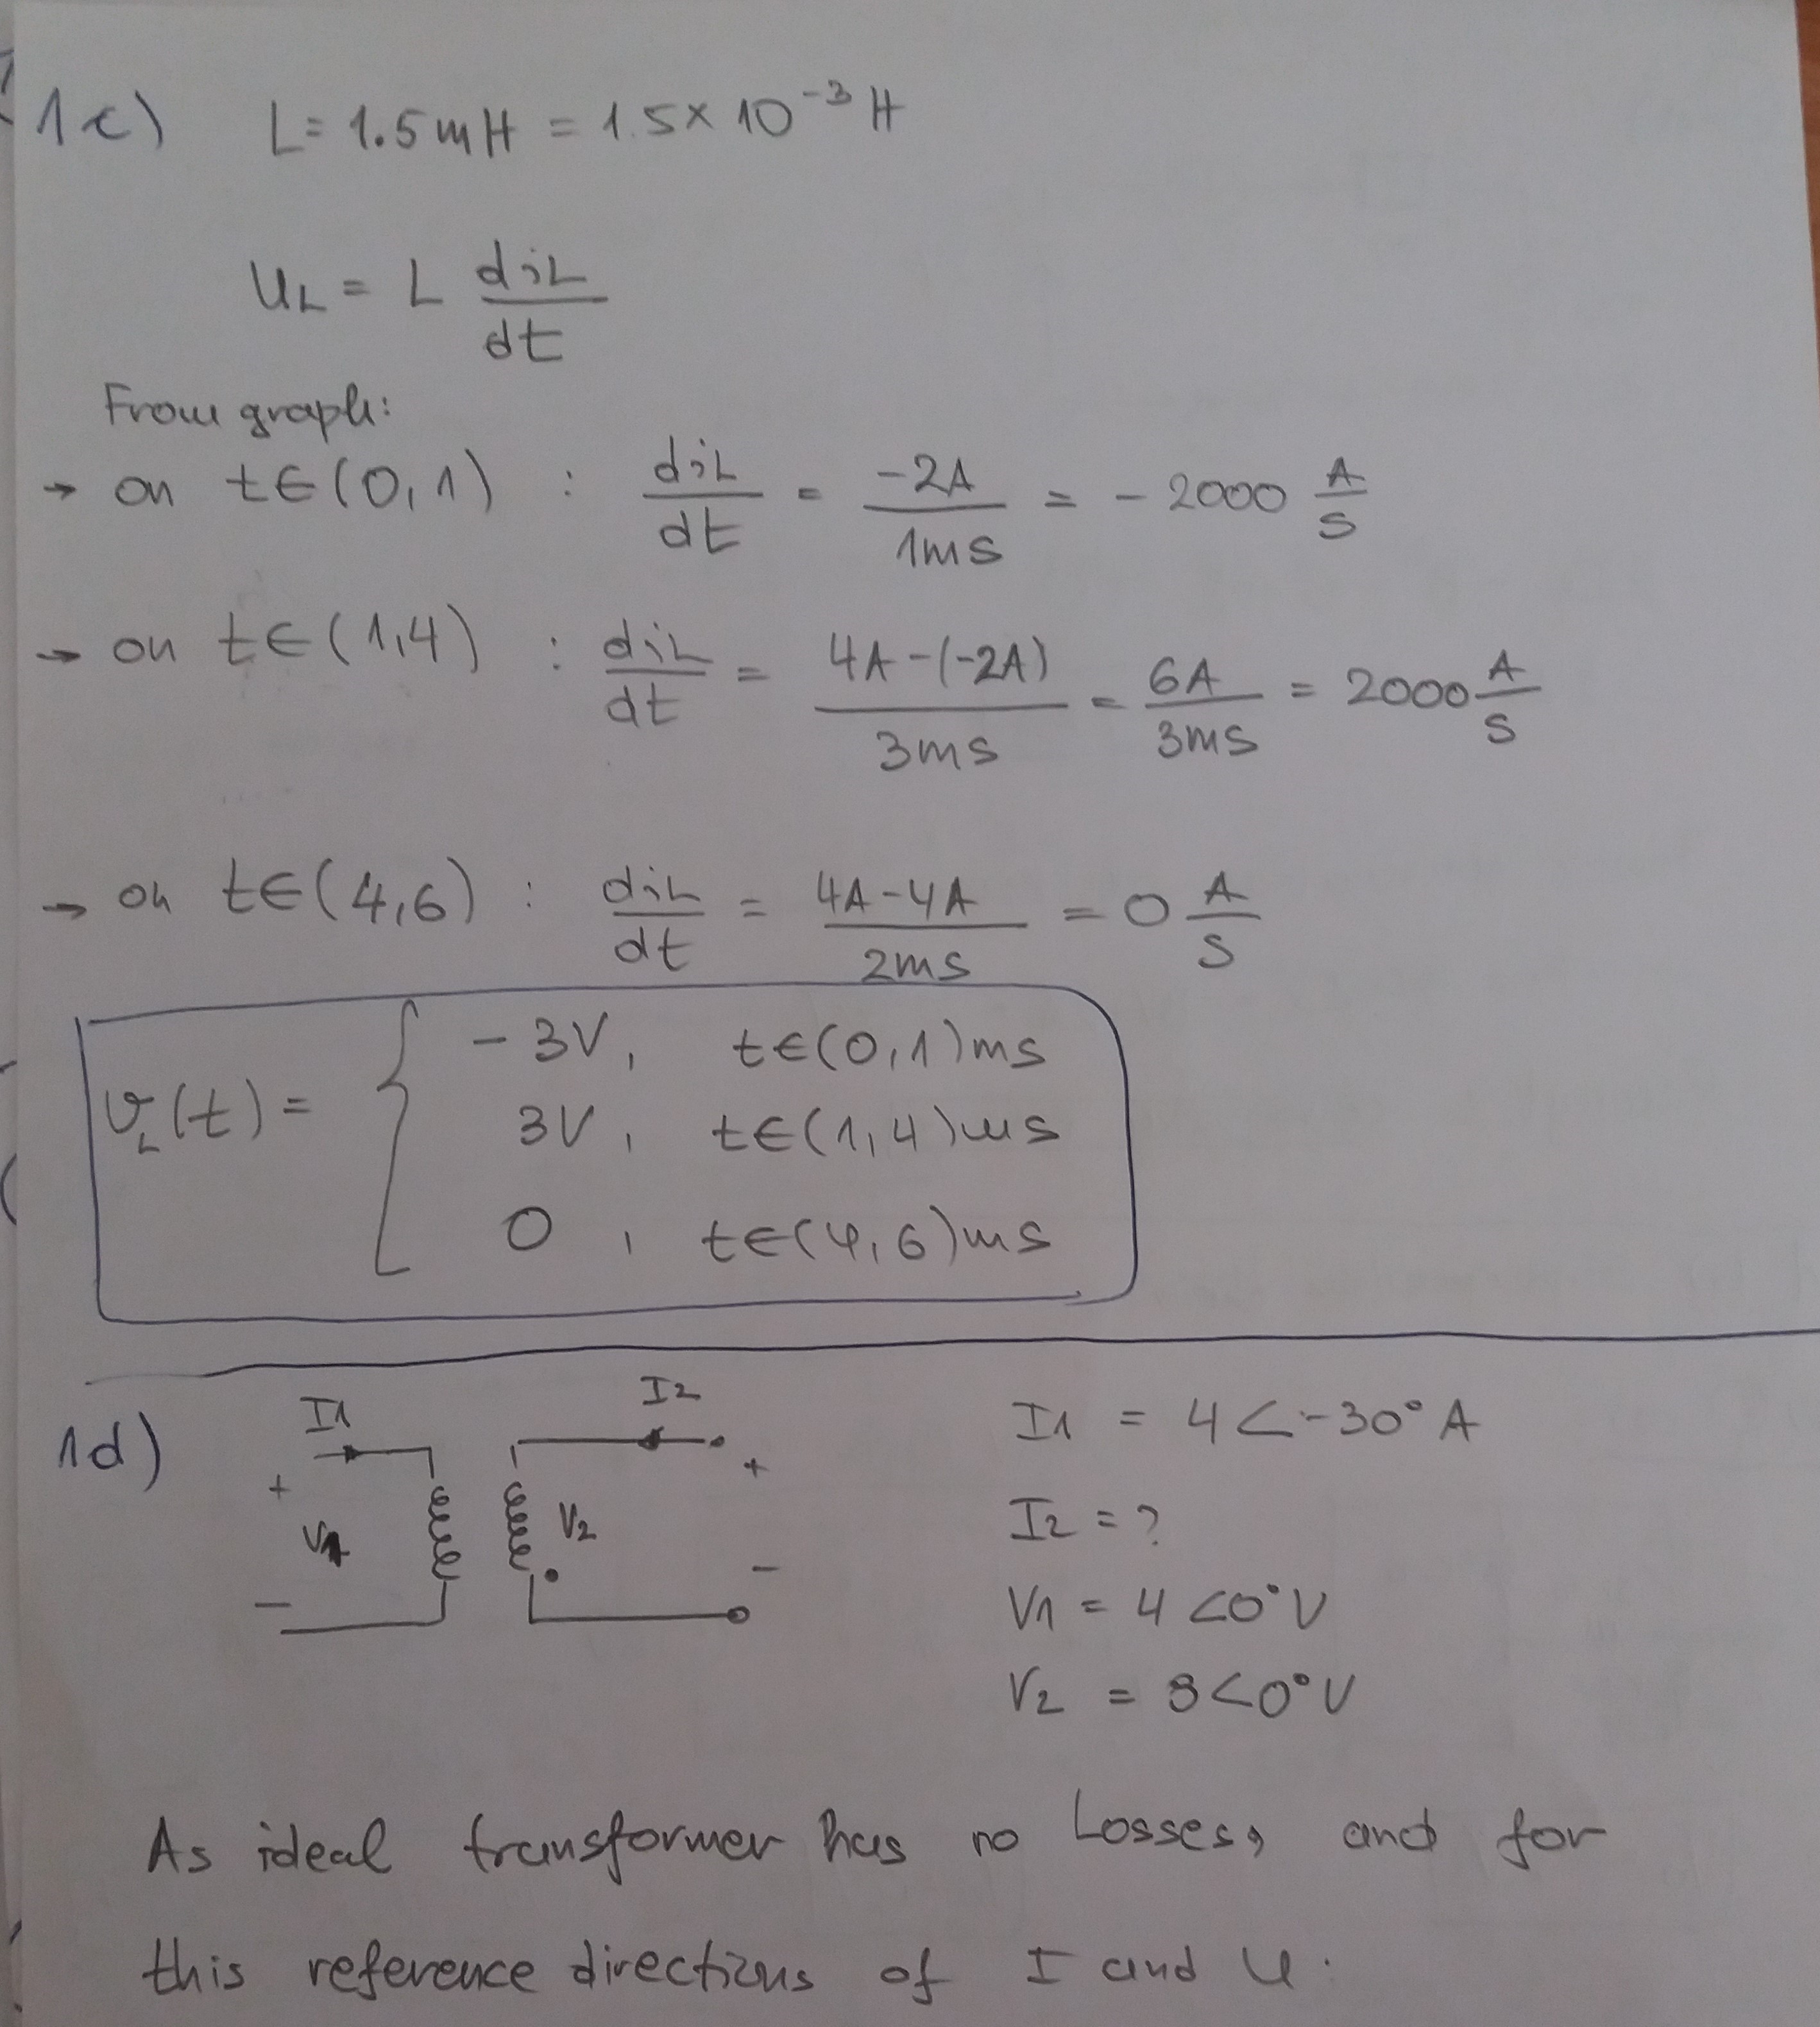 1c) L = 1.5mH = 1.5 × 10⁻³ H
UL = L diL/dt
From graph:
→ on t∈(0,1) : diL/dt = -2A/1ms = -2000 A/s
→ on t∈(1,4) : diL/dt = 4A-(-2A)/3ms = 6A/3ms = 2000 A/s
→ on t∈(4,6) : diL/dt = 4A-4A/2ms = 0 A/s
-3V, t∈(0,1)ms
vL(t) = { 3V, t∈(1,4)ms
0, t∈(4,6)ms
1d) I1 I2 I1 = 4<-30° A
+ +
V1 V2 I2 = ?
- - V1 = 4<0° V
V2 = 8<0° V
As ideal transformer has no Losses, and for
this reference directions of I and U: